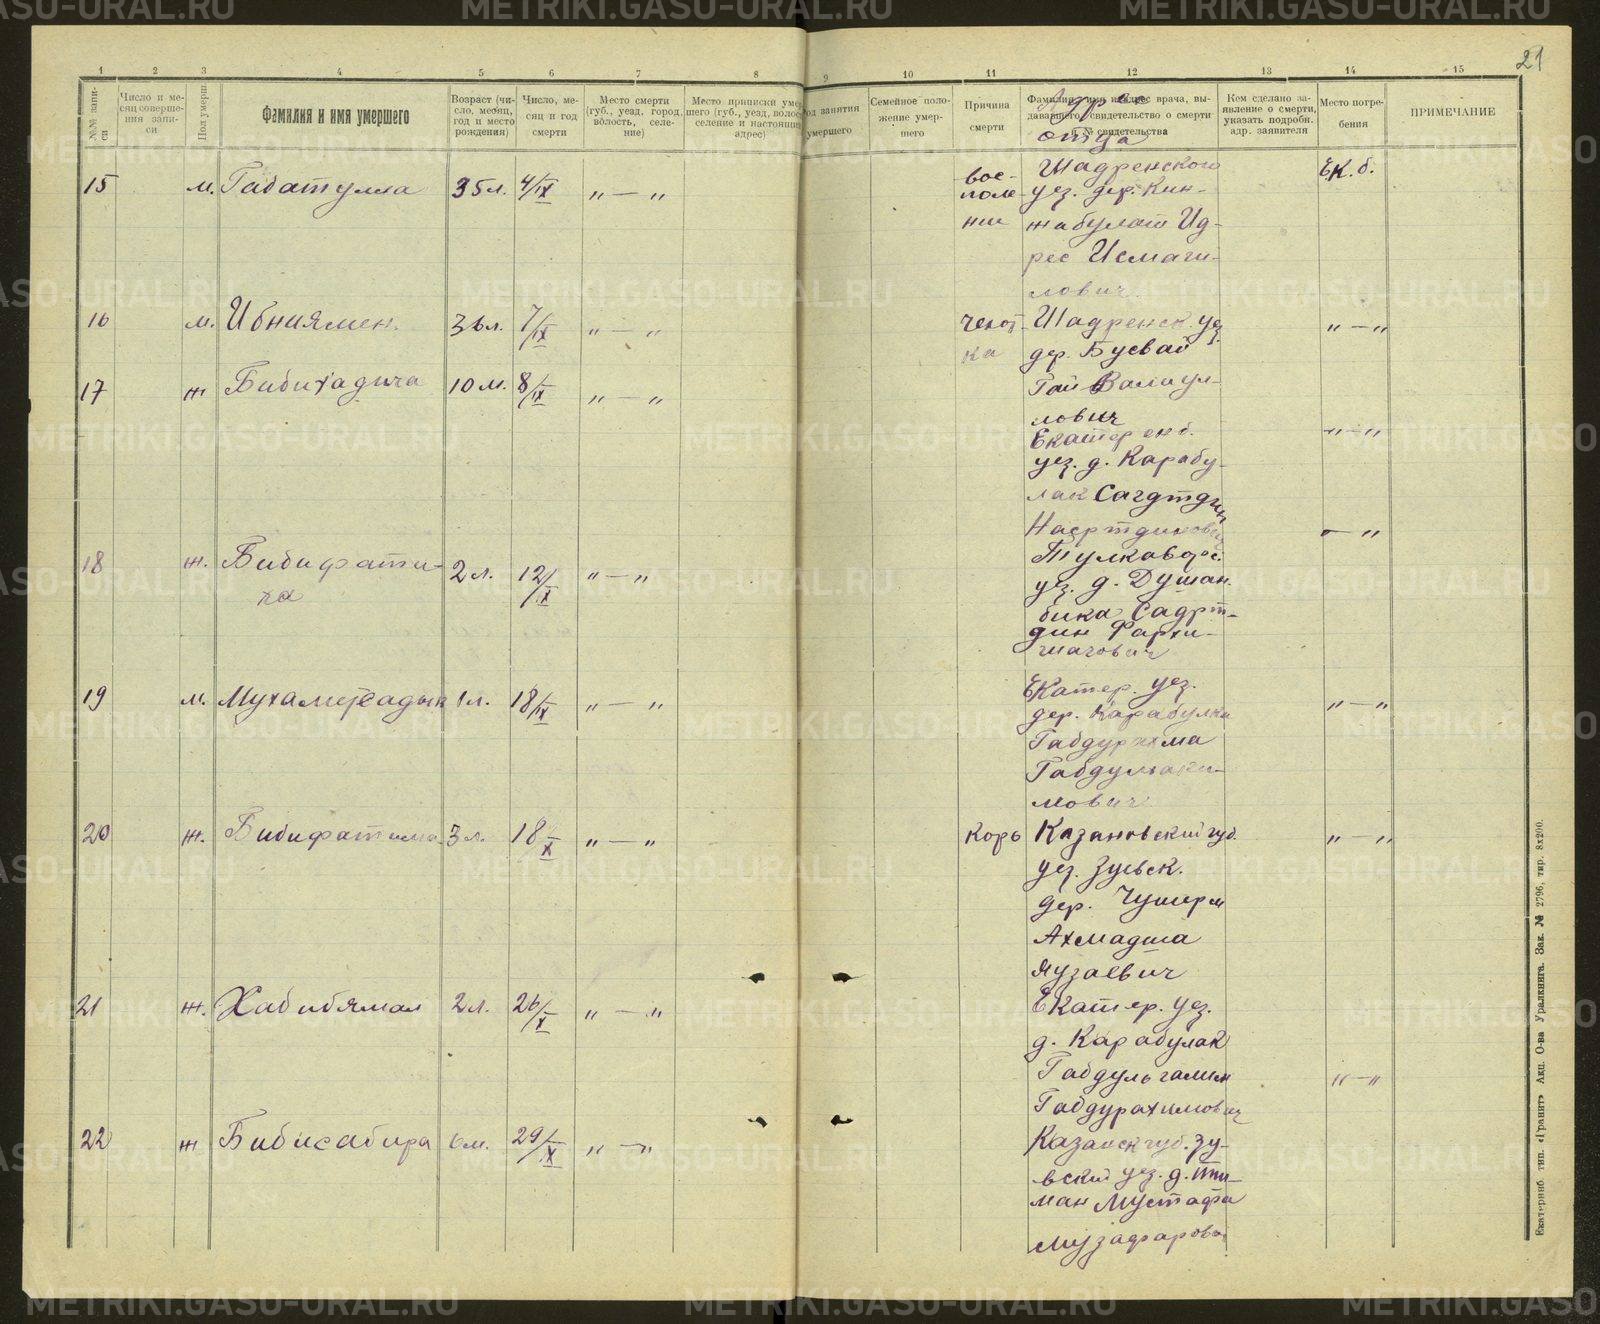 21
1 2 3 4 5 6 7 8 9 10 11 12 13 14 15
№№ запи-
си
Число и ме-
сяц соверше-
ния запи-
си
Пол умерш.
Фамилия и имя умершего
Возраст (чи-
сло, месяц,
год и место
рождения)
Число, ме-
сяц и год
смерти
Место смерти
(губ., уезд, город,
волость, селе-
ние)
Место приписки умер-
шего (губ., уезд, волос
селение и настоящий
адрес)
од занятия
умершего
Семейное поло-
жение умер-
шего
Причина
смерти
Фамилия, имя и адрес врача, вы-
давшего свидетельство о смерти
и № свидетельства
отца
Кем сделано за-
явление о смерти,
указать подробн.
адр. заявителя
Место погре-
бения
ПРИМЕЧАНИЕ
15 м. Габатулла 35 л. 4/IX „ — „
вос-
поле-
нии
Шадренского
уез. дер. Кин-
жабулат Ид-
рес Исмаги-
лович
Ек. б.
16 м. Ибниямен. 36 л. 7/IX „ — „
чехот-
ка
Шадренск. уез
дер. Бусвай
Гай Валиул-
лович
„ — „
17 ж Бибихадича 10 м. 8/IX „ — „
Екатеренб.
уез. д. Карабу-
лак Сагдтдин
Насртдинович
„ — „
18 ж. Бибифати-
ха
2 л. 12/IX „ — „
уез. д. Душан.
бика Садрт-
дин Фархи-
шатович
— „
19 м. Мухаметсадык 1 л. 18/IX „ — „
Екатер. уез.
дер. Карабулка
Габдурахма
Габдульхаки-
мович
„ — „
20 ж. Бибифатима 3 л. 18/X „ — „
корь
Казановский губ.
уез. Зуевск.
дер. Чушерм
Ахмадша
Яузаевич
„ — „
21 ж. Хабибямал 2 л. 26/X „ — „
Екатер. уез.
д. Карабулак
Габдульгалим
Габдурахимович
„ — „
22 ж Бибисабира 6 м. 29/X „ — „
Казанск губ. Зу-
вский уез. д. Ши-
ман Мустафа
Музафарович
Екатеринб тип. «Гранит» Акц. О-ва Уралкнига. Зак. № 2796, тир. 8x200.
METRIKI.GASO-URAL.RU